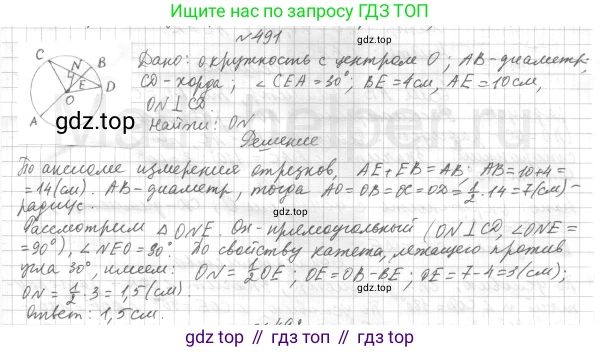 Ищите нас по запросу ГДЗ ТОП
№491
Дано: окружность с центром O; AB-диаметр;
CD-хорда; ∠CEA=30°; BE=4см, AE=10см,
ON⊥CD.
Найти: ON
Решение
C N B E D O A
gdz.top
По аксиоме измерения отрезков, AE+EB=AB; AB=10+4=
=14(см). AB-диаметр, тогда AO=OB=OC=OD=1/2·14=7(см)-
радиус.
Рассмотрим △ONE. Он-прямоугольный (ON⊥CD, ∠ONE=
=90°), ∠NEO=30°. По свойству катета, лежащего против
угла 30°, имеем: ON=1/2OE; OE=OB-BE; OE=7-4=3(см);
ON=1/2·3=1,5(см).
Ответ: 1,5см.
gdz.top // gdz.top // gdz.top